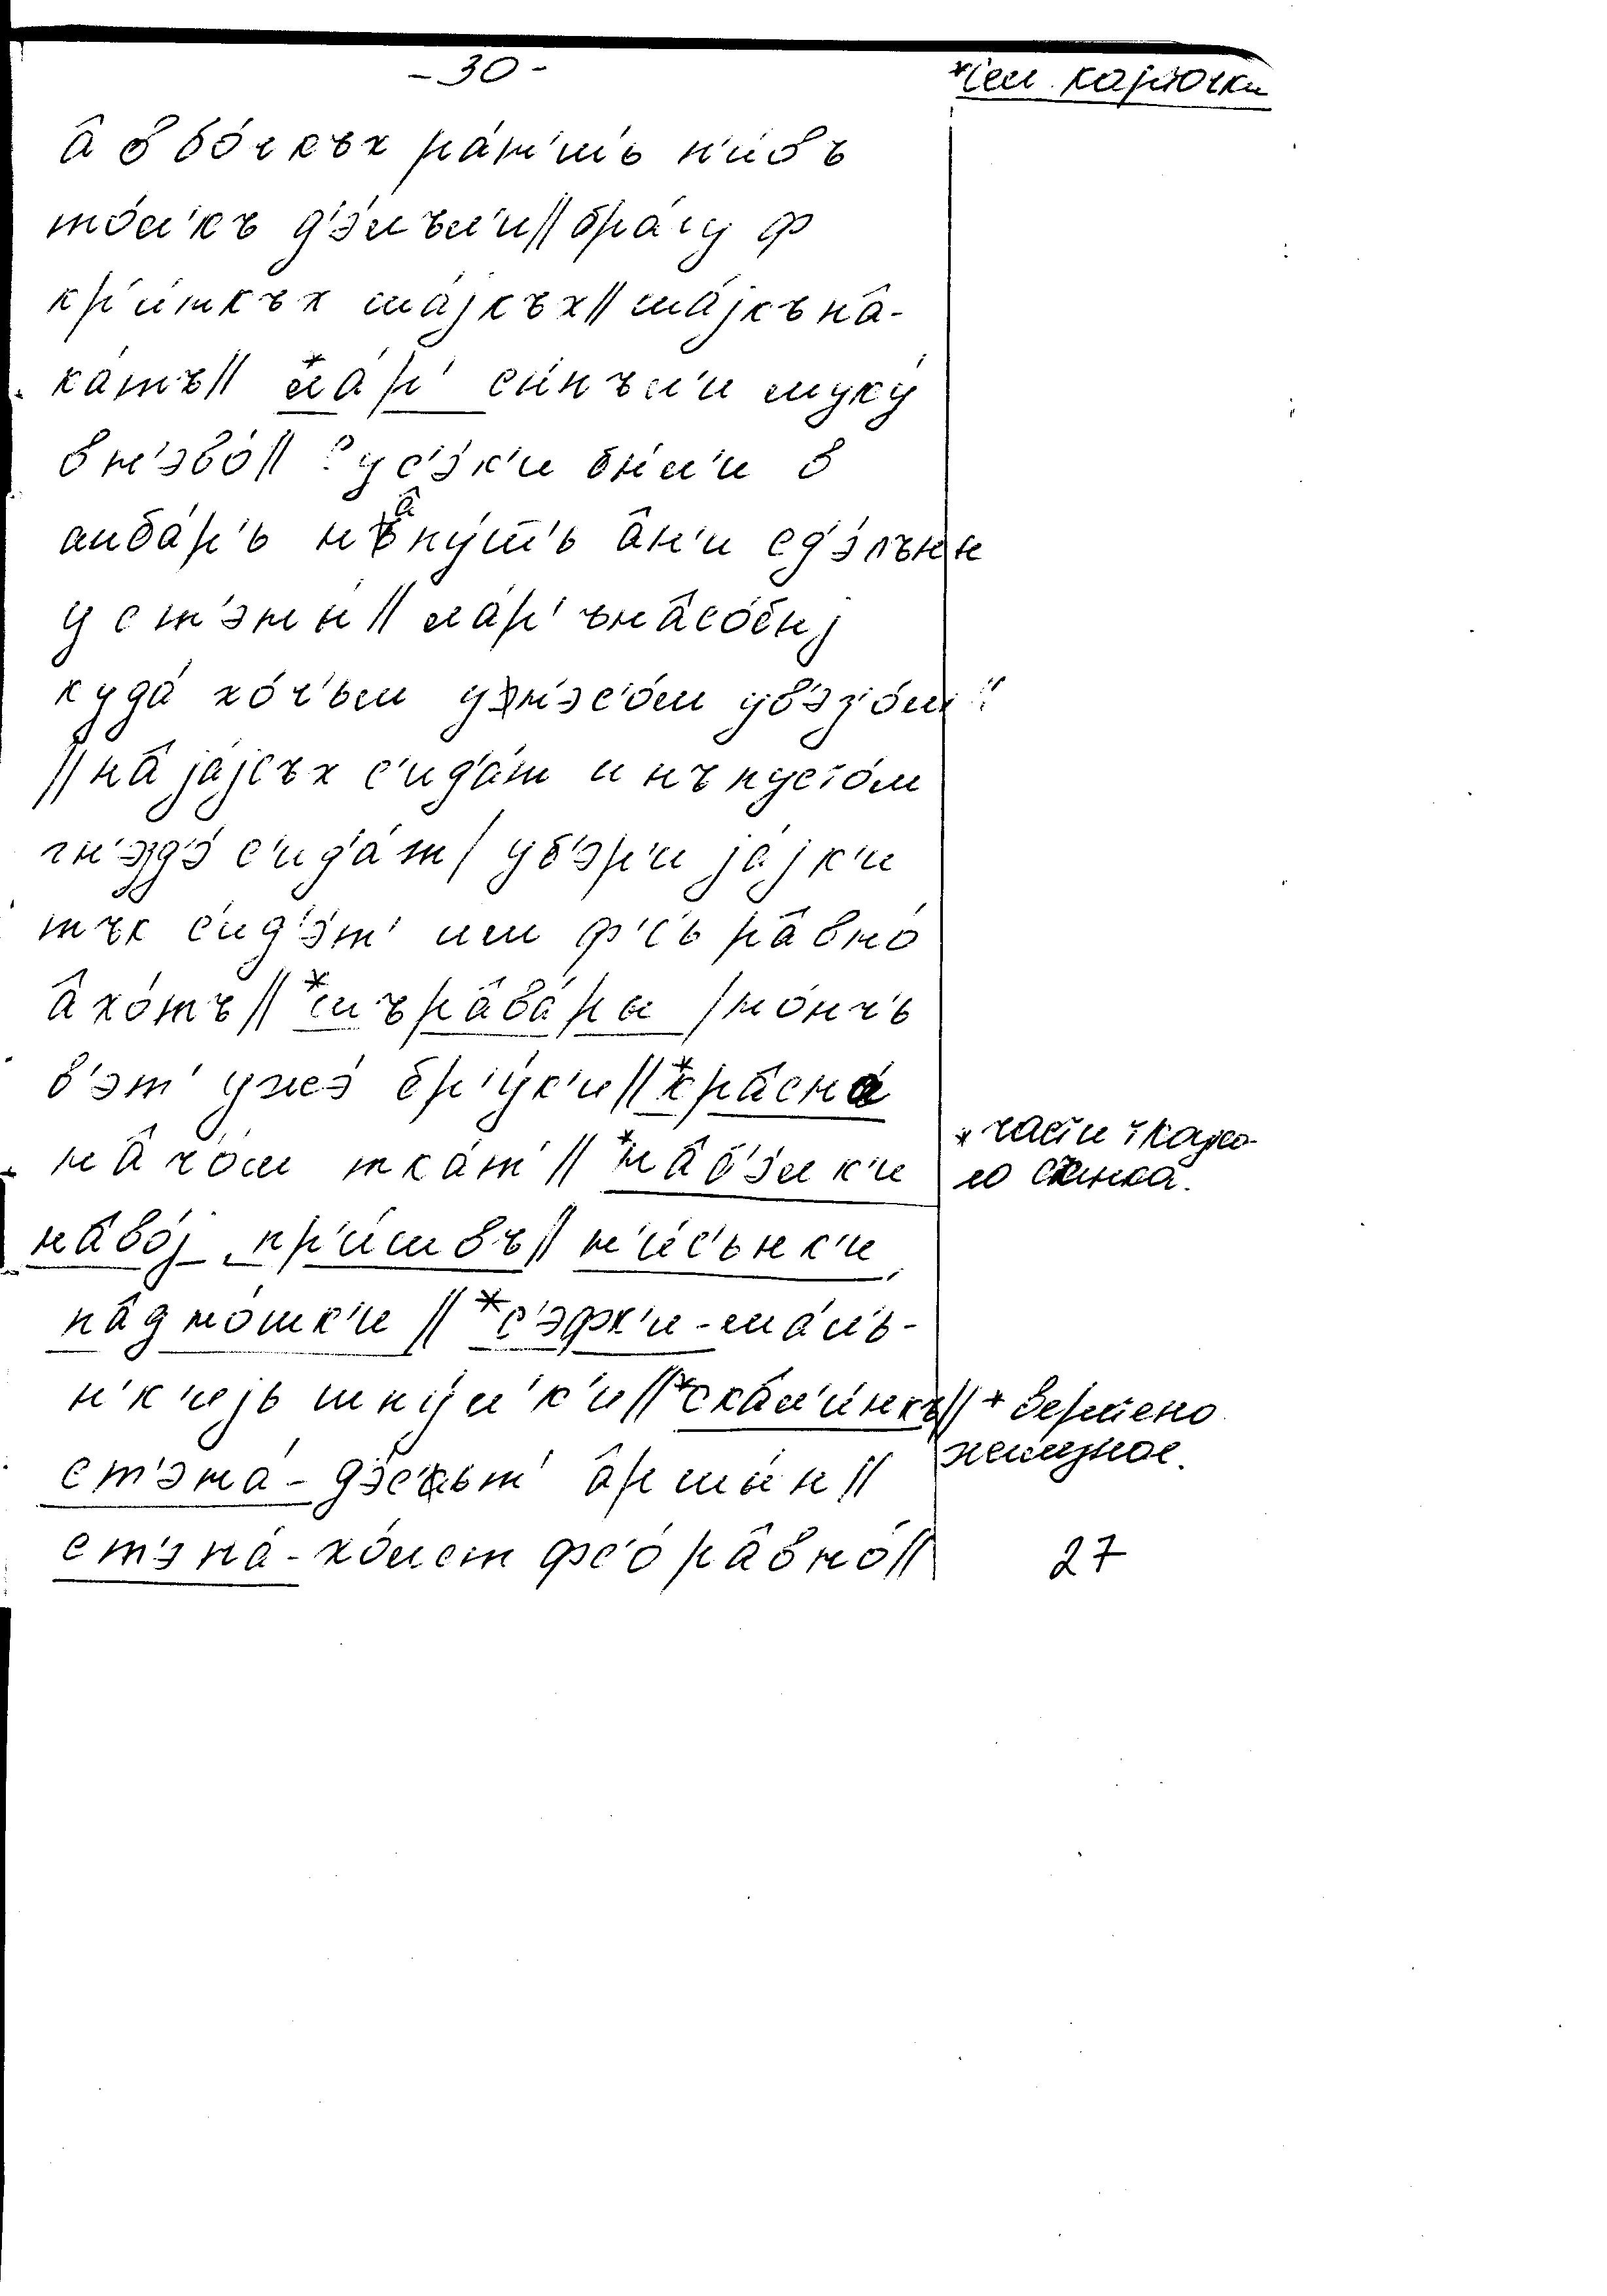 - 30 -
*см. карточки
â в бо́чкъх ра́н'шь п'и́въ
то́л'къ д'э́лъл'и // бра́гу ф
кр'и́nкъх ша́јкъх // ша́јкъ нâ-
ка́тъ // *ла́р' сы́пъл'и муку́
в н'эво́ // ус'э́к'и бы́л'и в
амба́р'ь нâпу́т'ь âн'и сд'э́лъны
у ст'эны́ // ла́р' ънâсо́быј
куда́ хо́ч'ьш ун'эс'о́ш ув'эз'о́ш
// нâ ја́јсъх с'ид'а́т и нъ пусто́м
гн'эзд'э́ с'ид'а́т / уб'эр'и ја́јк'и
тък с'ид'э́т' им ф'с'ь рâвно́
âхо́тъ // *шърâва́ры / но́нч'ь
в'эт' ужэ́ бр'у́к'и // *кра́сна
нâ чо́м тка́т' // *нâб'э́лк'и
нâво́ј, пр'и́швъ // н'и́с'ънк'и,
пâдно́шк'и // *с'э́фк'и - ма́л'ь-
н'к'ијь шпу́л'к'и // *скâл'и́нкъ //
ст'эна́ - д'э́с'ьт' âршы́н //
ст'эна́ - хо́лст фс'о́ рâвно́ //
* части ткацко-
го станка.
* веретено
железное.
27